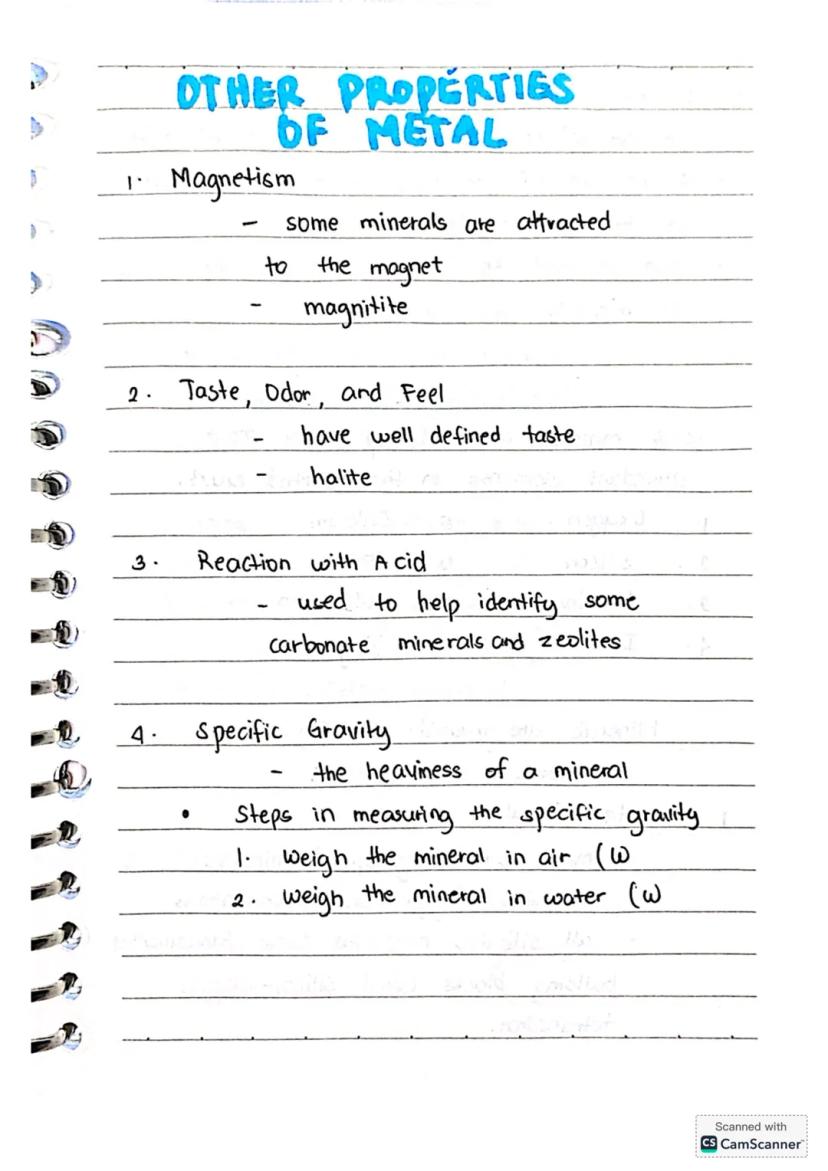 OTHER PROPERTIES
OF METAL
1. Magnetism
- some minerals are attracted
to the magnet
- magnitite
2. Taste, Odor, and Feel
- have well defined taste
- halite
3. Reaction with Acid
- used to help identify some
carbonate minerals and zeolites
4. Specific Gravity
- the heaviness of a mineral
• Steps in measuring the specific gravity
1. Weigh the mineral in air (W
2. weigh the mineral in water (W
Scanned with
CS CamScanner